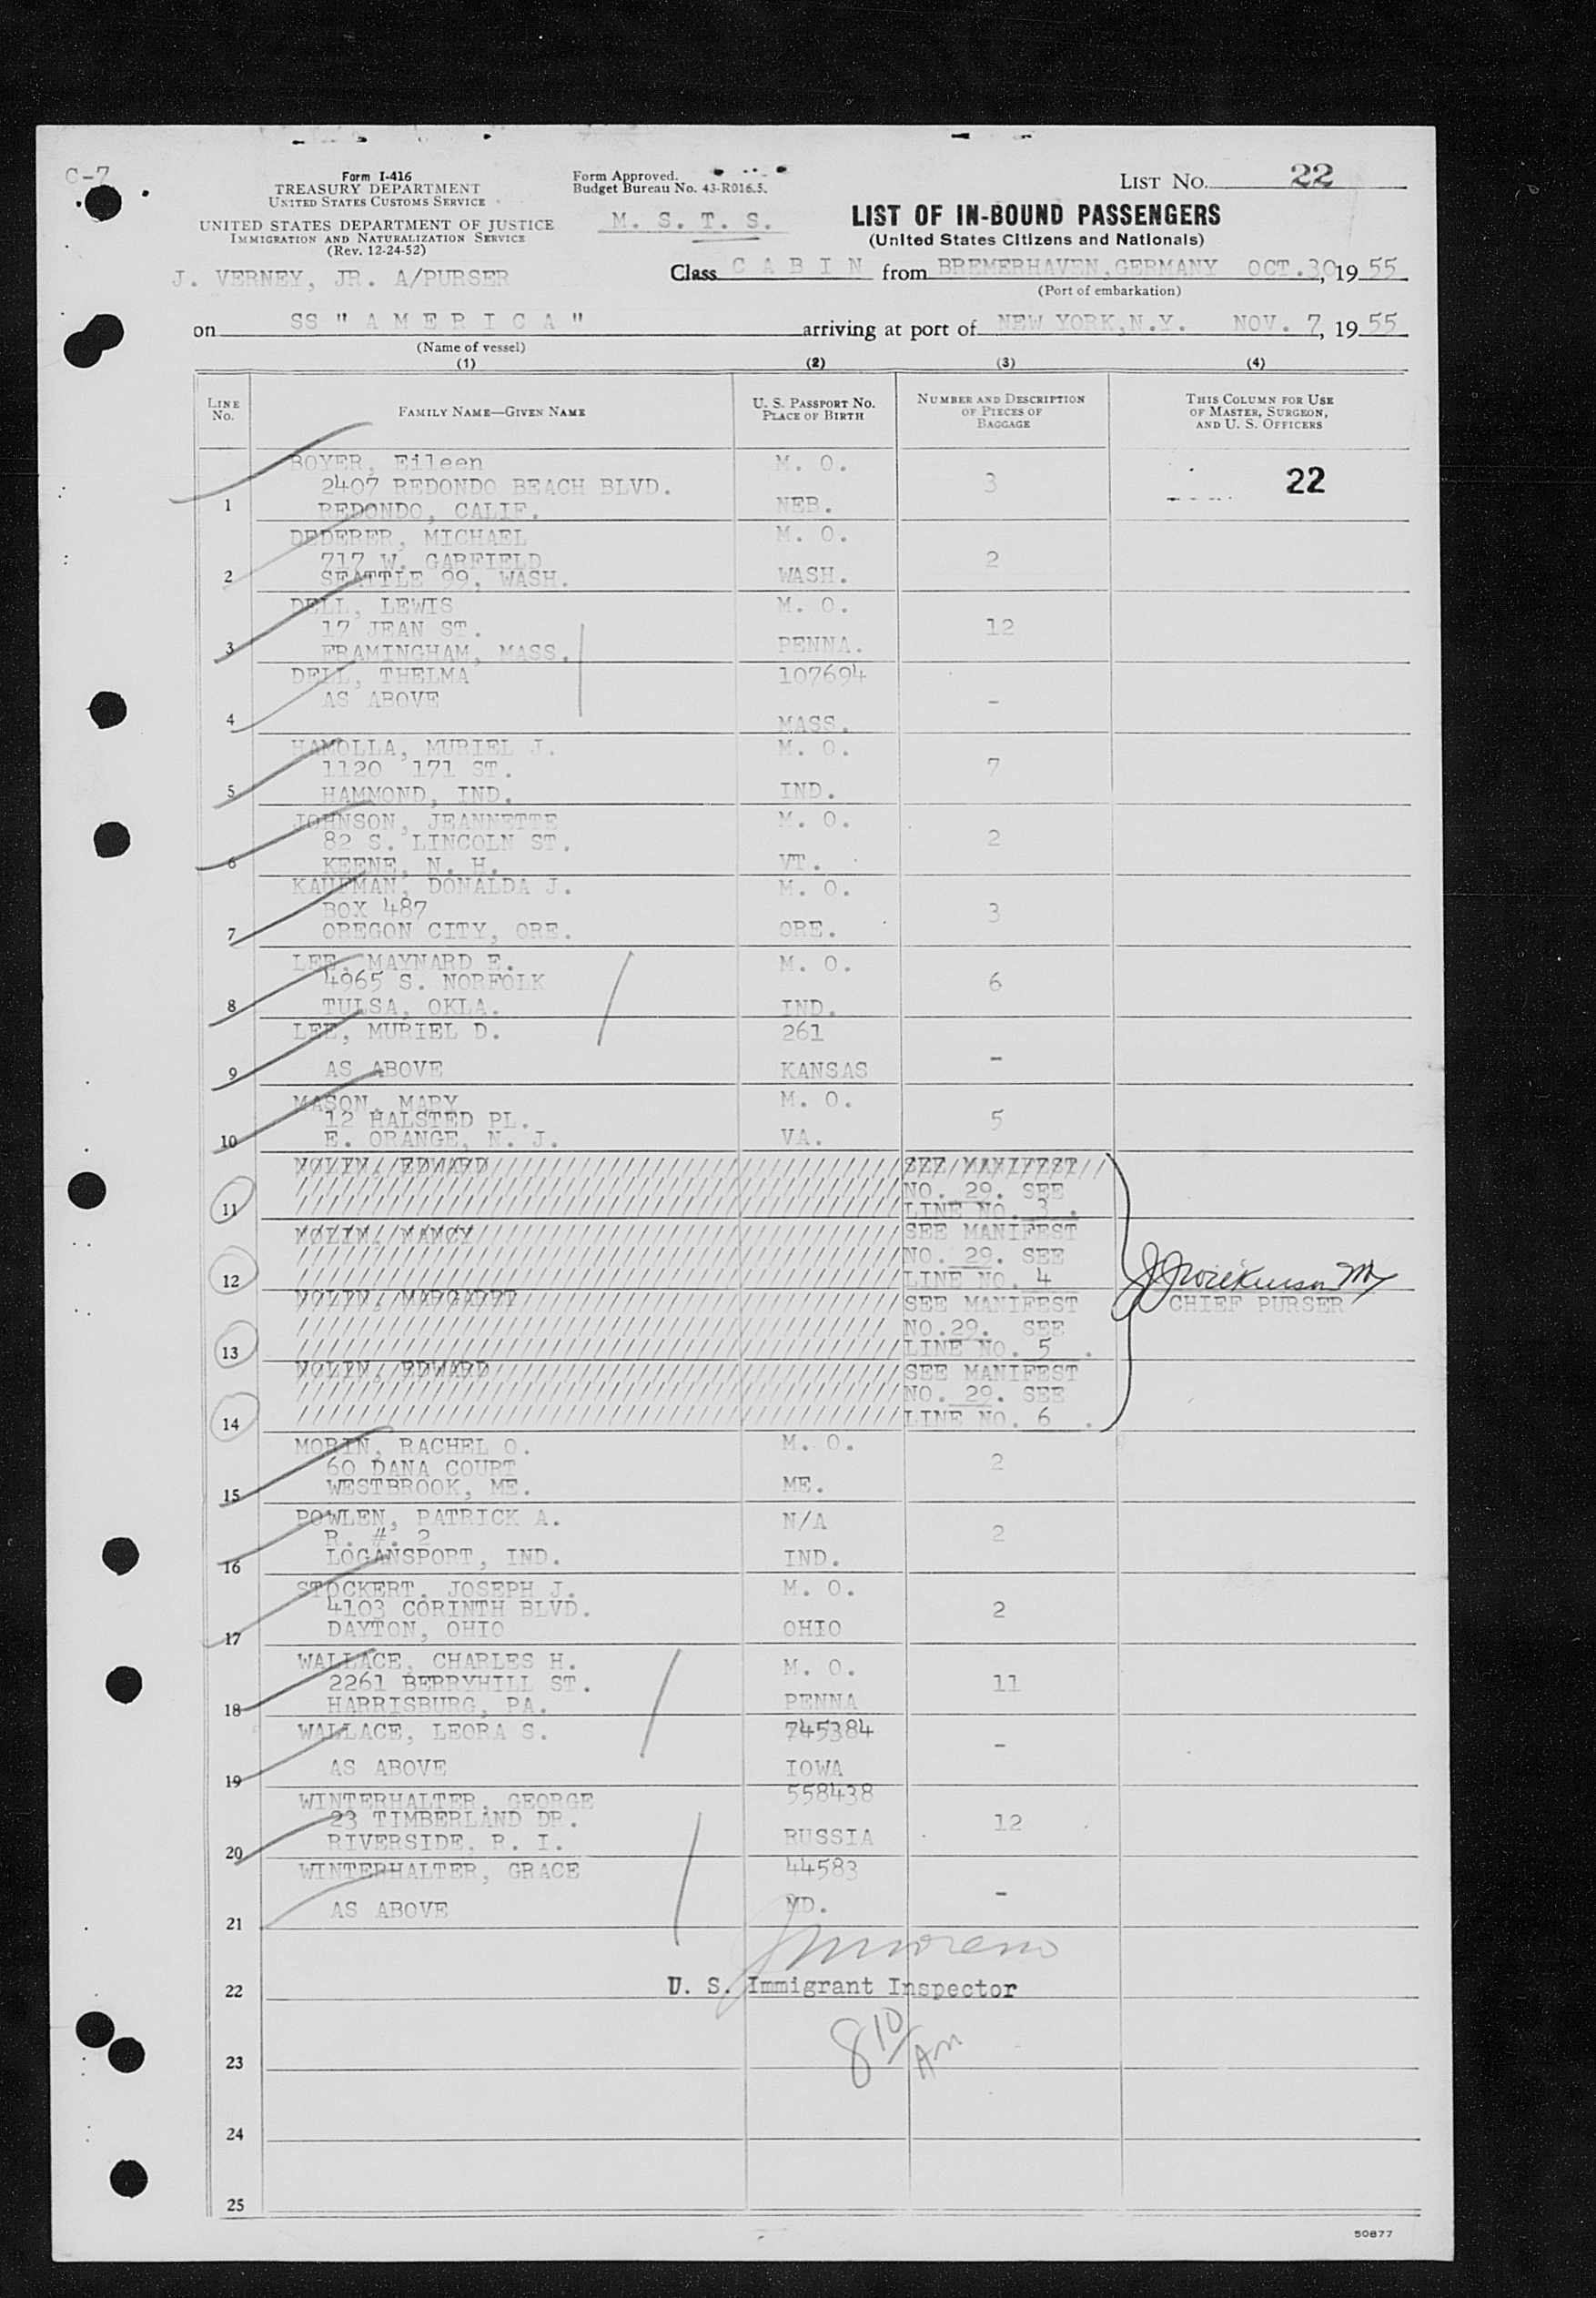 C-7
Form I-416
TREASURY DEPARTMENT
UNITED STATES CUSTOMS SERVICE
UNITED STATES DEPARTMENT OF JUSTICE
IMMIGRATION AND NATURALIZATION SERVICE
(Rev. 12-24-52)
J. VERNEY, JR. A/PURSER
Form Approved.
Budget Bureau No. 43-R016.5.
M. S. T. S.
LIST NO. 22
LIST OF IN-BOUND PASSENGERS
(United States Citizens and Nationals)
Class CABIN from BREMERHAVEN, GERMANY OCT. 30, 1955
(Port of embarkation)
on SS "AMERICA" arriving at port of NEW YORK, N.Y. NOV. 7, 1955
(Name of vessel)
(1) (2) (3) (4)
LINE NO. FAMILY NAME—GIVEN NAME U. S. PASSPORT NO. PLACE OF BIRTH NUMBER AND DESCRIPTION OF PIECES OF BAGGAGE THIS COLUMN FOR USE OF MASTER, SURGEON, AND U. S. OFFICERS
BOYER, Eileen M. O.
2407 REDONDO BEACH BLVD. 3 22
1 REDONDO, CALIF. NEB.
DEDERER, MICHAEL M. O.
717 W. GARFIELD 2
2 SEATTLE 99, WASH. WASH.
DELL, LEWIS M. O.
17 JEAN ST. 12
3 FRAMINGHAM, MASS. PENNA.
DELL, THELMA 107694
AS ABOVE -
4 MASS.
HAMOLLA, MURIEL J. M. O.
1120 171 ST. 7
5 HAMMOND, IND. IND.
JOHNSON, JEANNETTE M. O.
82 S. LINCOLN ST. 2
6 KEENE, N. H. VT.
KAUFMAN, DONALDA J. M. O.
BOX 487 3
7 OREGON CITY, ORE. ORE.
LEE, MAYNARD E. M. O.
4965 S. NORFOLK 6
8 TULSA, OKLA. IND.
LEE, MURIEL D. 261
9 AS ABOVE KANSAS -
MASON, MARY M. O.
12 HALSTED PL. 5
10 E. ORANGE, N. J. VA.
EDWARD SEE MANIFEST
NO. 29. SEE
11 LINE NO. 3.
NANCY SEE MANIFEST
NO. 29. SEE
12 LINE NO. 4
MARGARET SEE MANIFEST
CHIEF PURSER
NO. 29. SEE
13 LINE NO. 5.
EDWARD SEE MANIFEST
NO. 29. SEE
14 LINE NO. 6.
MORIN, RACHEL O. M. O.
60 DANA COURT 2
15 WESTBROOK, ME. ME.
POWLEN, PATRICK A. N/A
R. #. 2 2
16 LOGANSPORT, IND. IND.
STOCKERT, JOSEPH J. M. O.
4103 CORINTH BLVD. 2
17 DAYTON, OHIO OHIO
WALLACE, CHARLES H. M. O.
2261 BERRYHILL ST. 11
18 HARRISBURG, PA. PENNA
WALLACE, LEORA S. 745384
-
19 AS ABOVE IOWA
WINTERHALTER, GEORGE 558438
23 TIMBERLAND DR. 12
20 RIVERSIDE, R. I. RUSSIA
WINTERHALTER, GRACE 44583
AS ABOVE MD. -
21
22 U. S. Immigrant Inspector
8 10/AM
23
24
25
50877